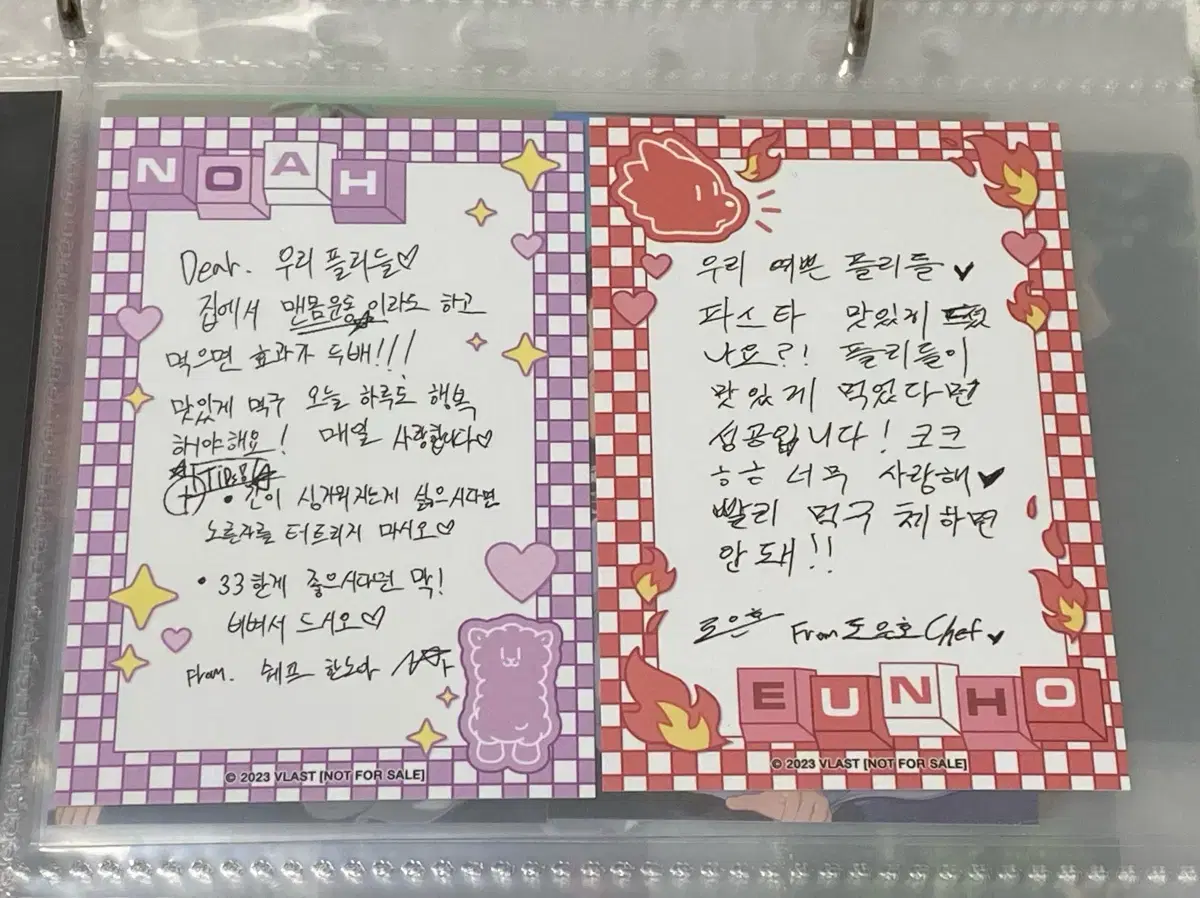 NOAH
Dear. 우리 플리들♡
집에서 맨몸운동이라도 하고
먹으면 효과가 두배!!!
맛있게 먹구 오늘 하루도 행복
해야해요! 매일 사랑합니다♡
+ TIPS
• 간이 싱거워지는게 싫으시다면
노른자를 터트리지 마시오♡
• 33한게 좋으시다면 막!
비벼서 드시오♡
From. 쉐프 한노아
© 2023 VLAST [NOT FOR SALE]
우리 예쁜 플리들 ♥
파스타 맛있게 드셨
나요?! 플리들이
맛있게 먹었다면
성공입니다! 코크
ㅎㅎ 너무 사랑해♥
빨리 먹구 체하면
안 돼!!
From 도은호 Chef ♥
EUNHO
© 2023 VLAST [NOT FOR SALE]